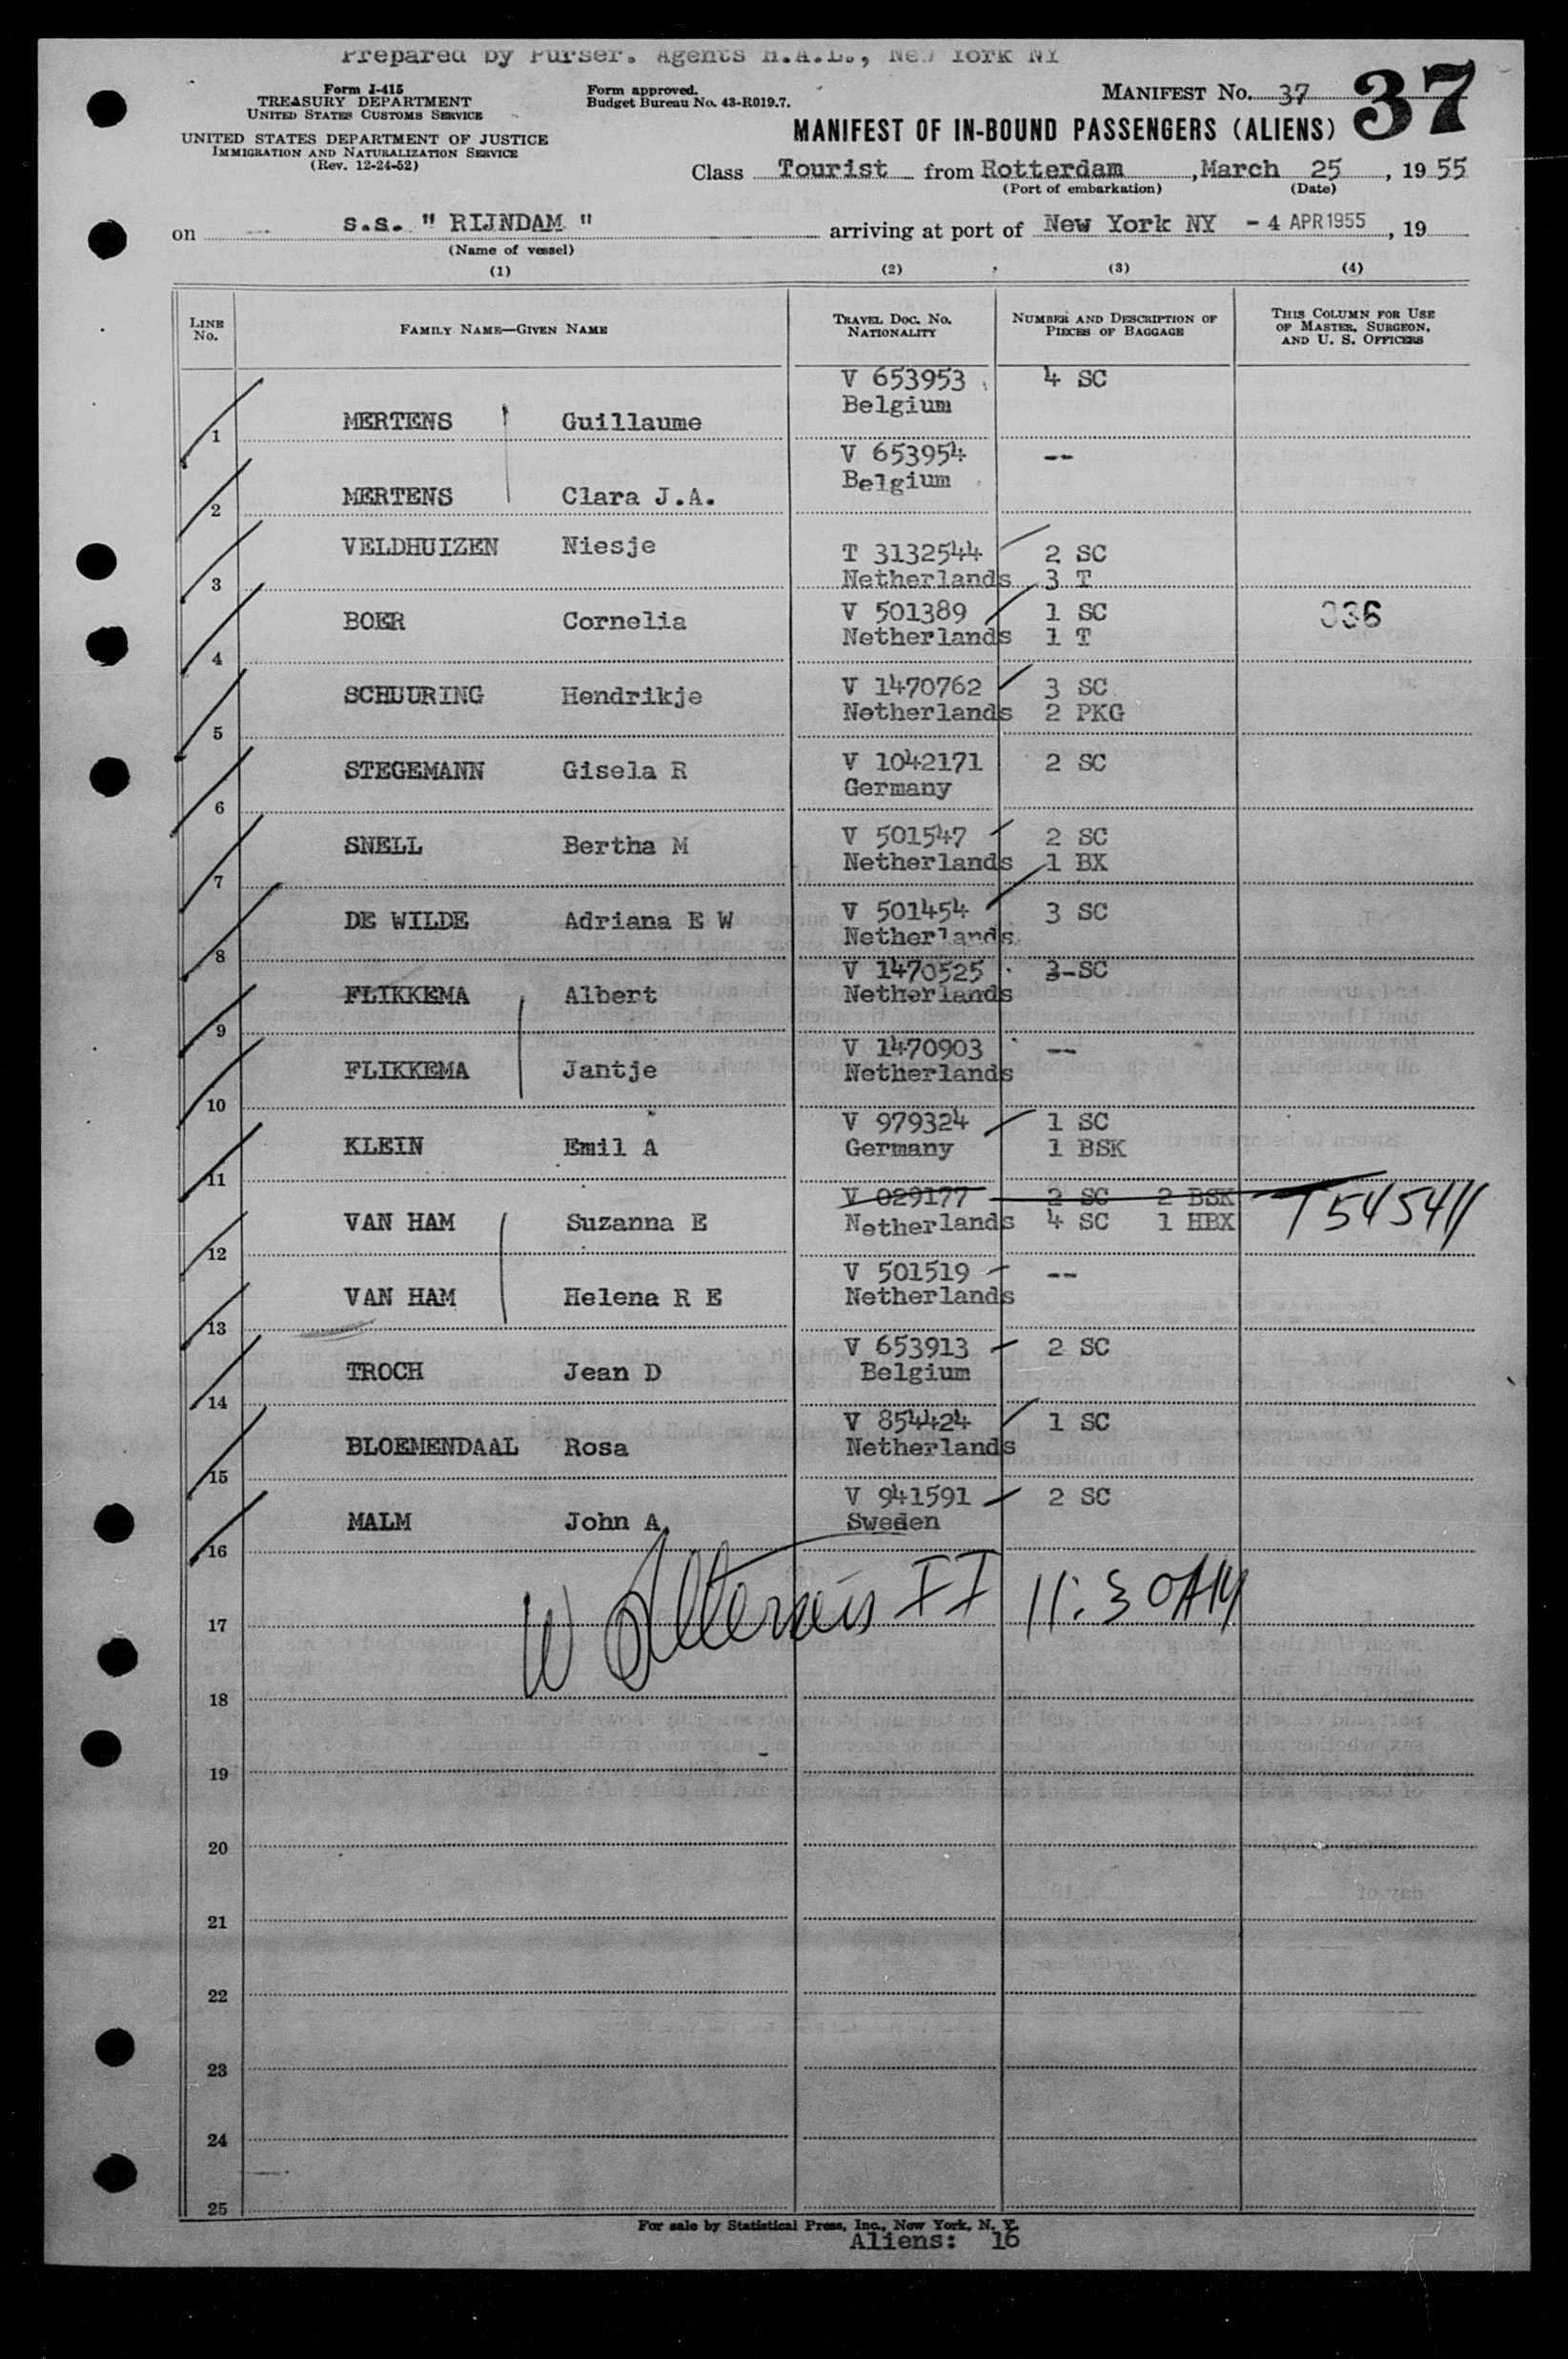 Prepared by Purser. Agents H.A.L., New York NY
Form I-415
TREASURY DEPARTMENT
UNITED STATES CUSTOMS SERVICE
UNITED STATES DEPARTMENT OF JUSTICE
IMMIGRATION AND NATURALIZATION SERVICE
(Rev. 12-24-52)
Form approved.
Budget Bureau No. 43-R019.7.
MANIFEST NO. 37
37
MANIFEST OF IN-BOUND PASSENGERS (ALIENS)
Class Tourist from Rotterdam, March 25, 1955
(Port of embarkation) (Date)
on s.s. " RIJNDAM " arriving at port of New York NY - 4 APR 1955, 19
(Name of vessel)
(1) (2) (3) (4)
LINE No. FAMILY NAME—GIVEN NAME TRAVEL DOC. NO. NATIONALITY NUMBER AND DESCRIPTION OF PIECES OF BAGGAGE THIS COLUMN FOR USE OF MASTER, SURGEON, AND U. S. OFFICERS
V 653953 4 SC
Belgium
1 MERTENS Guillaume
V 653954 --
Belgium
2 MERTENS Clara J.A.
VELDHUIZEN Niesje T 3132544 2 SC
3 Netherlands 3 T
BOER Cornelia V 501389 1 SC 036
4 Netherlands 1 T
SCHUURING Hendrikje V 1470762 3 SC
5 Netherlands 2 PKG
STEGEMANN Gisela R V 1042171 2 SC
6 Germany
SNELL Bertha M V 501547 2 SC
7 Netherlands 1 BX
DE WILDE Adriana E W V 501454 3 SC
8 Netherlands
V 1470525 3 SC
9 FLIKKEMA Albert Netherlands
V 1470903 --
10 FLIKKEMA Jantje Netherlands
V 979324 1 SC
11 KLEIN Emil A Germany 1 BSK
V 029177 2 SC 2 BSK T545411
12 VAN HAM Suzanna E Netherlands 4 SC 1 HBX
V 501519 --
13 VAN HAM Helena R E Netherlands
V 653913 2 SC
14 TROCH Jean D Belgium
V 854424 1 SC
15 BLOEMENDAAL Rosa Netherlands
V 941591 2 SC
16 MALM John A. Sweden
17 II 11:30AM
18
19
20
21
22
23
24
25
For sale by Statistical Press, Inc., New York, N. Y.
Aliens: 16